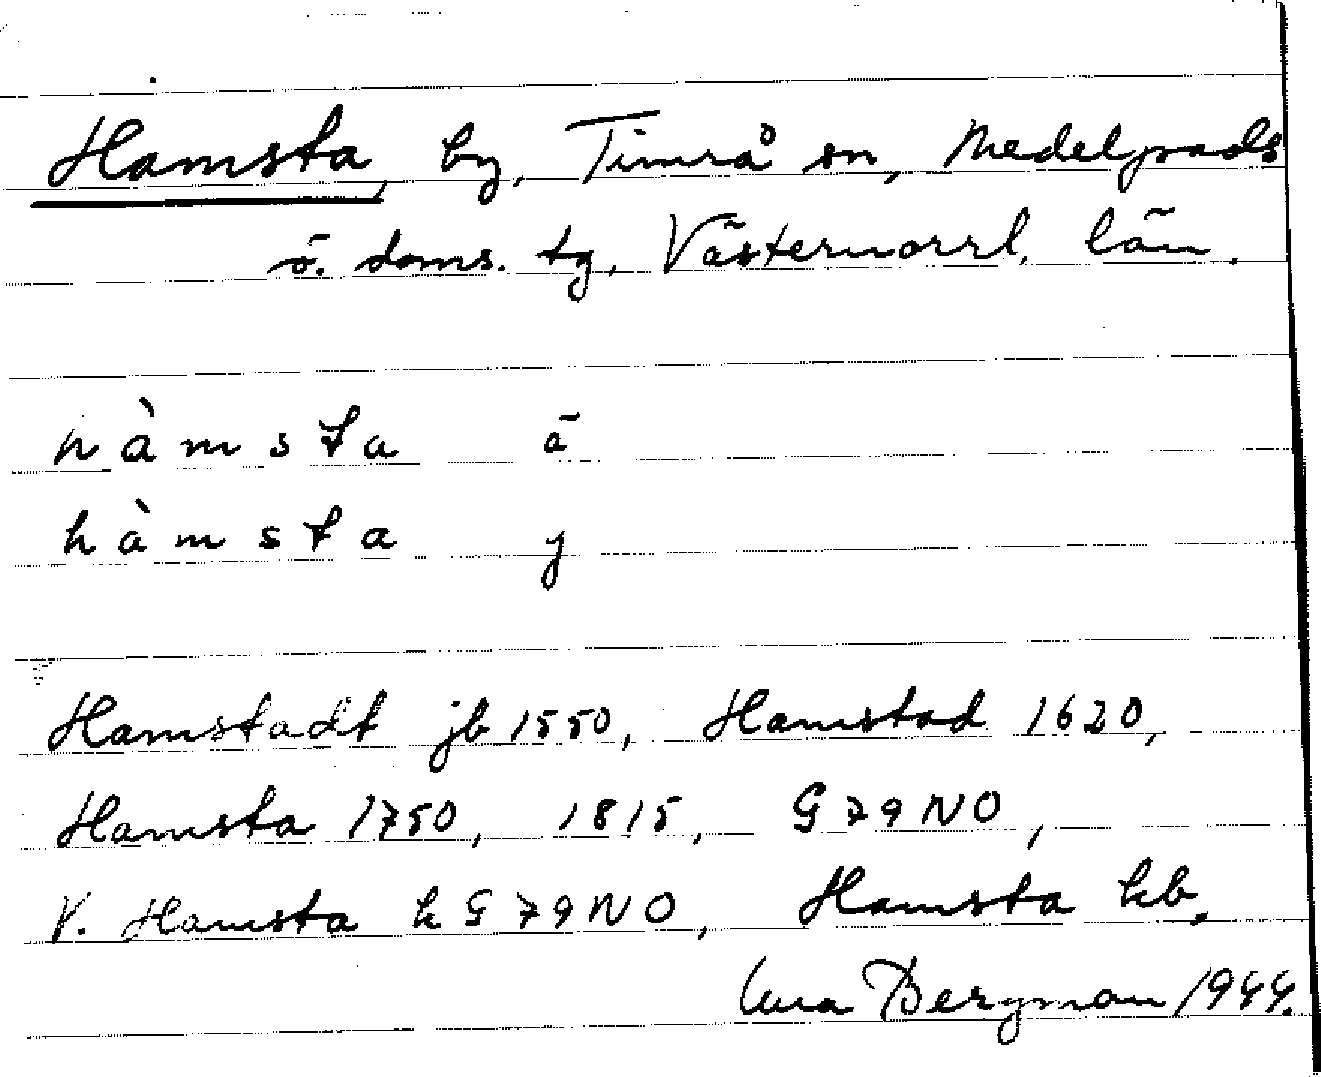 Hamsta, by, Timrå sn, Medelpads
ö. doms. tg, Västernorrl. län.
hàmsta ā
hàmsta y
Hamstadt jb 1550, Hamstad 1620,
Hamsta 1750, 1815, G 79 NO,
V. Hamsta k G 79 NO, Hamsta kb.
Bergman 1944.